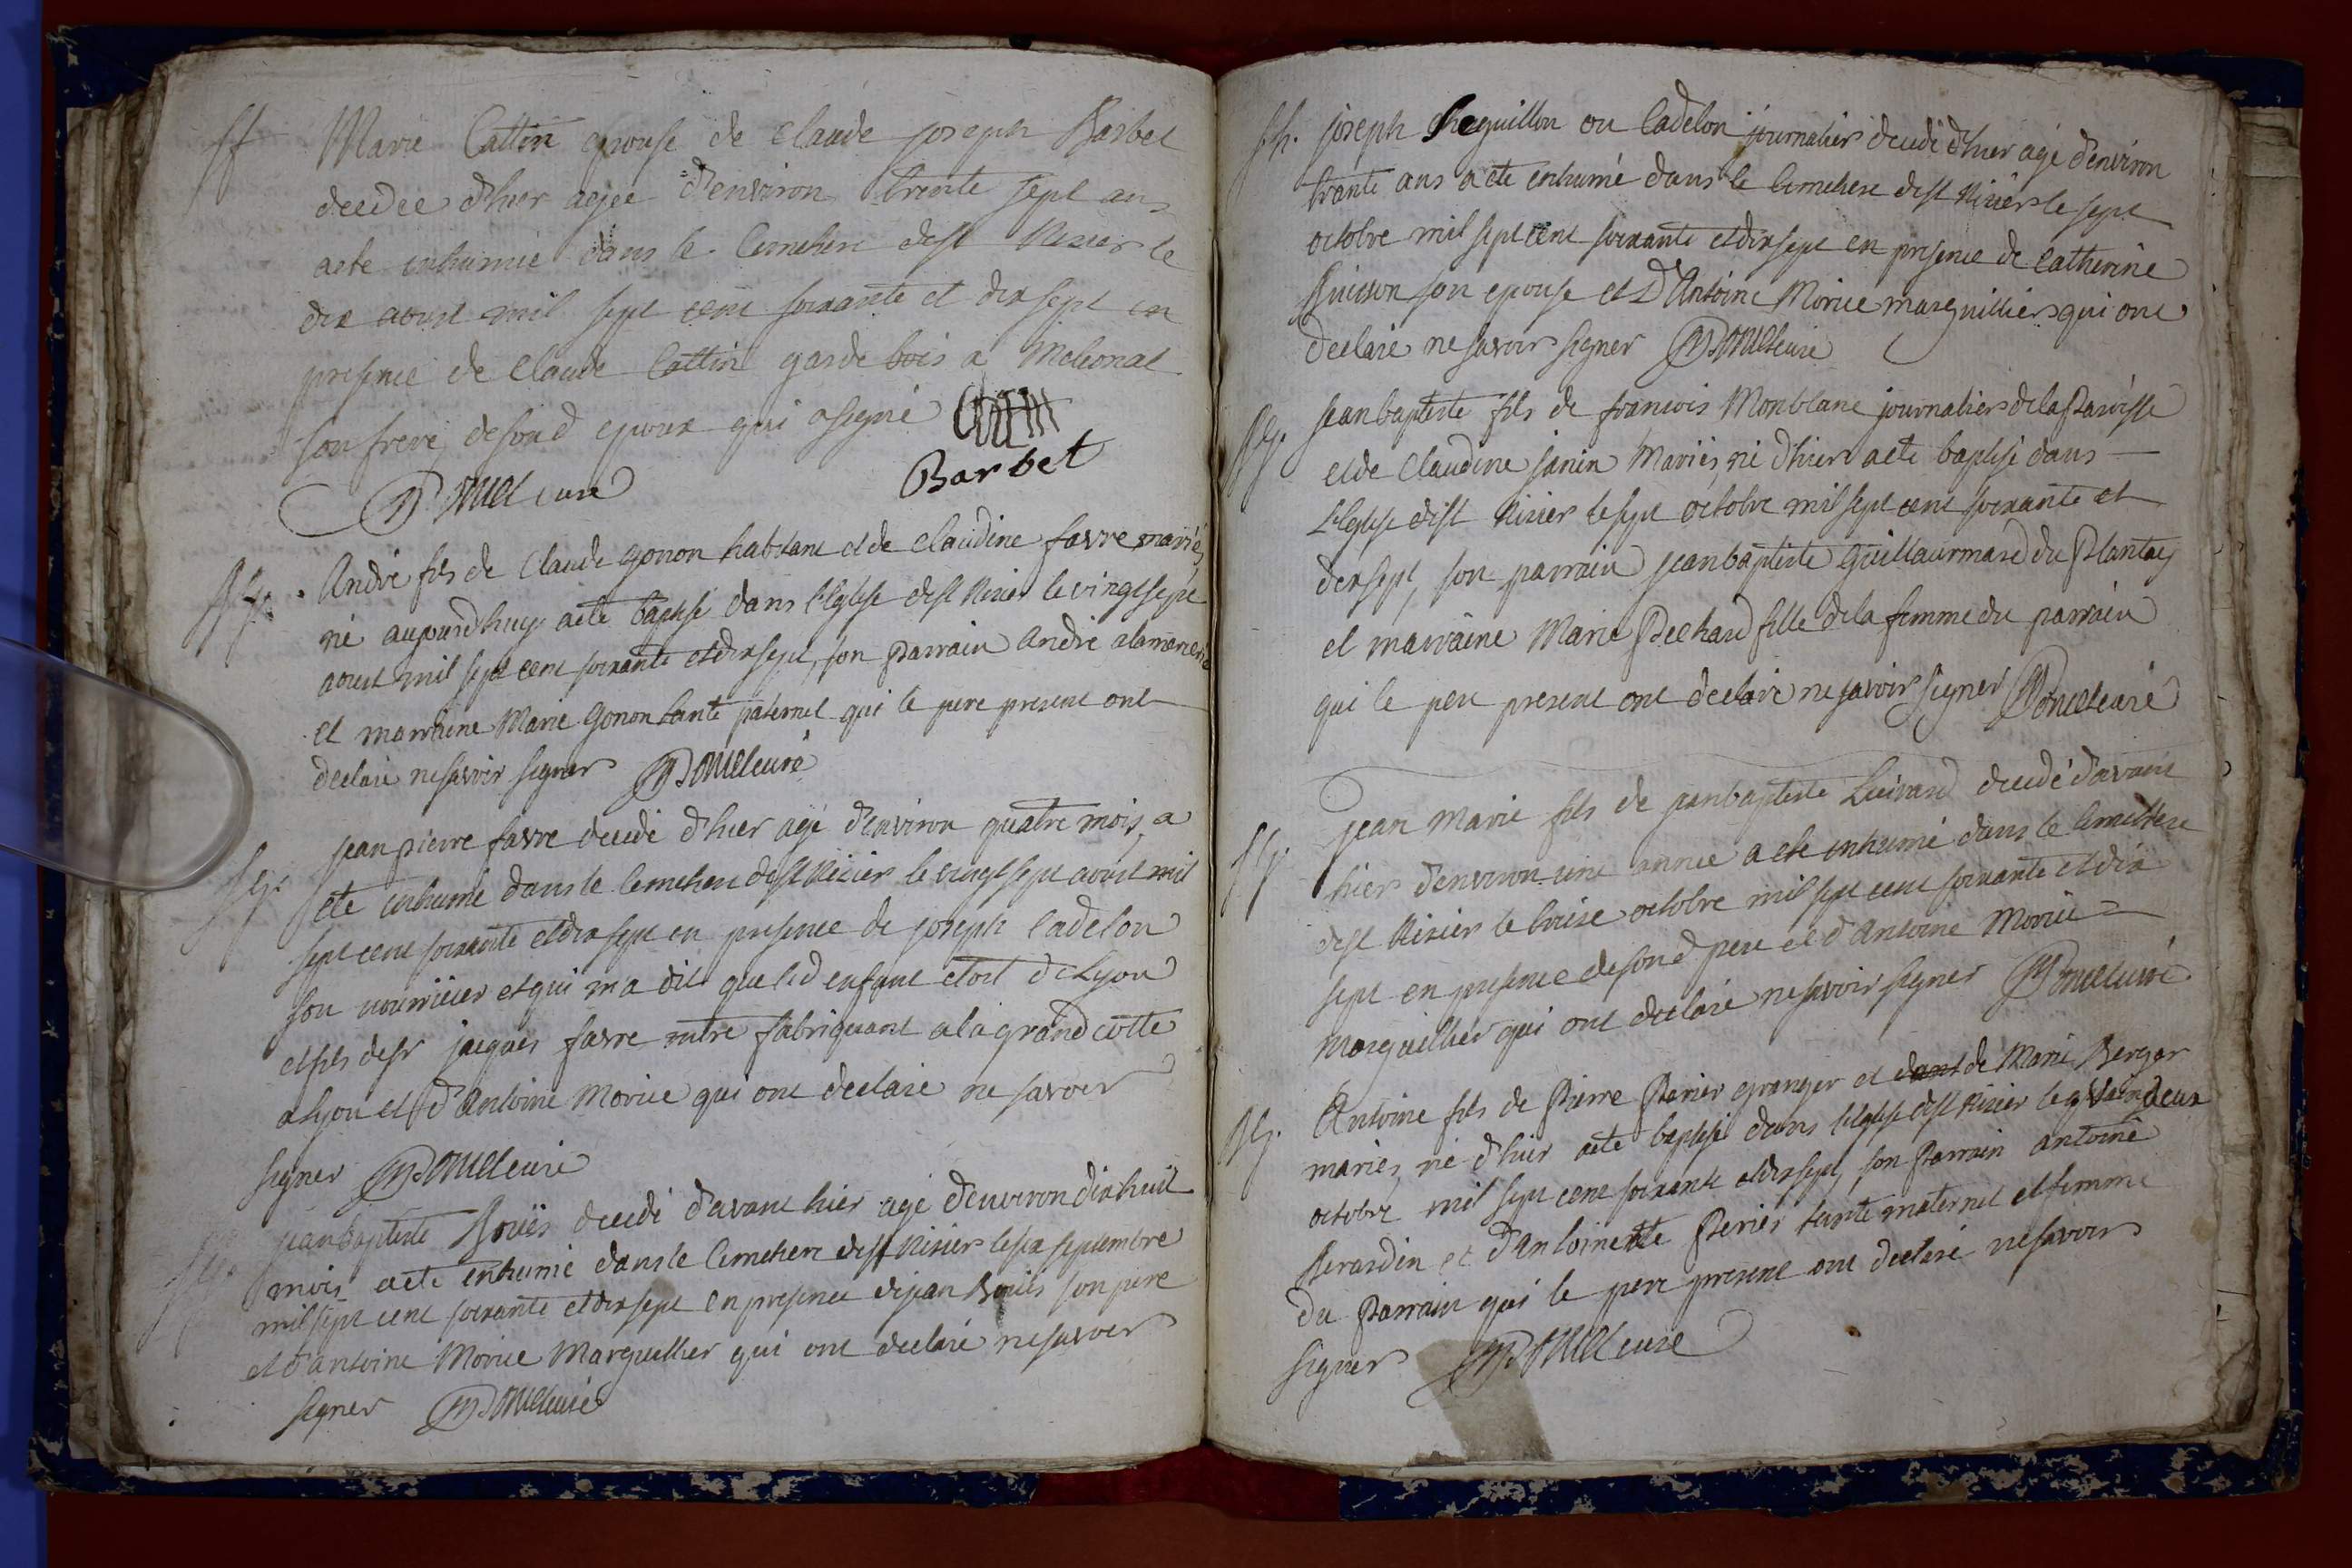 Marie Cattin epouse de claude joseph Barbet
decedee d'hier agée d'environ trente sept ans
a eté inhumée dans le Cimetiere de st Nizier le
dix aoust mil sept cent soixante et dix sept en
presence de Claude Cattin garde bois a
son frere, de son d epoux qui a signé
Barbet
curé
André fils de Claude Gonon habitant et de claudine favre mariés,
né aujourdhuy a eté baptisé dans l'Eglise de st Nizier le vingt sept
aoust mil sept cent soixante et dix sept, son Parrain andré
et marraine Marie Gonon tante paternel qui le pere present ont
declaré ne savoir signer curé
jean pierre favre decedé d'hier agé d'environ quatre mois, a
eté inhumé dans le Cimetiere de st Nizier le vingt sept aoust mil
sept cent soixante et dix sept en presence de joseph Cadelon
son nourricier et qui m'a dit que led enfant etoit de Lyon
et fils de sr jacques favre mtre fabriquant a la grand cotte
a Lyon et d'Antoine Morice qui ont declaré ne savoir
signer curé
jean baptiste Bouis decedé d'avant hier agé d'environ dix huit
mois a eté inhumé dans le Cimetiere de st Nizier le six septembre
mil sept cent soixante et dix sept en presence de jean Bouis son pere
et d'antoine Morice Marguillier qui ont declaré ne savoir
signer curé
joseph ou Cadelon journalier decedé d'hier agé d'environ
trante ans a eté inhumé dans le Cimetiere de st Nizier le sept
octobre mil sept cent soixante et dix sept en presence de Catherine
Buisson son epouse et d'Antoine Morice marguillier qui ont
declaré ne savoir signer curé
jean baptiste fils de francois Monblanc journalier de la Paroisse
et de Claudine janin Mariés, né d'hier a eté baptisé dans
L'Eglise de st Nizier le sept octobre mil sept cent soixante et
dix sept, son parrain jean baptiste Guillaurmard du Plantay
et marraine Marie Pechard fille de la femme du parrain
qui le pere present ont declaré ne savoir signer curé
jean Marie fils de jean baptiste decedé d'avant
hier d'environ une année a eté inhumé dans le Cimettiere
de st Nizier le treise octobre mil sept cent soixante et dix
sept en presence de son d pere et d'Antoine Morice
Marguillier qui ont declaré ne savoir signer curé
Antoine fils de Pierre Perier granger et de Marie Berger
mariés, né d'hier a eté baptisé dans l'Eglise de st Nizier le
octobre mil sept cent soixante et dix sept, son Parrain antoine
Berardin et d'Antoinette Perier tante maternel et femme
du Parrain qui le pere present ont declaré ne savoir
signer curé